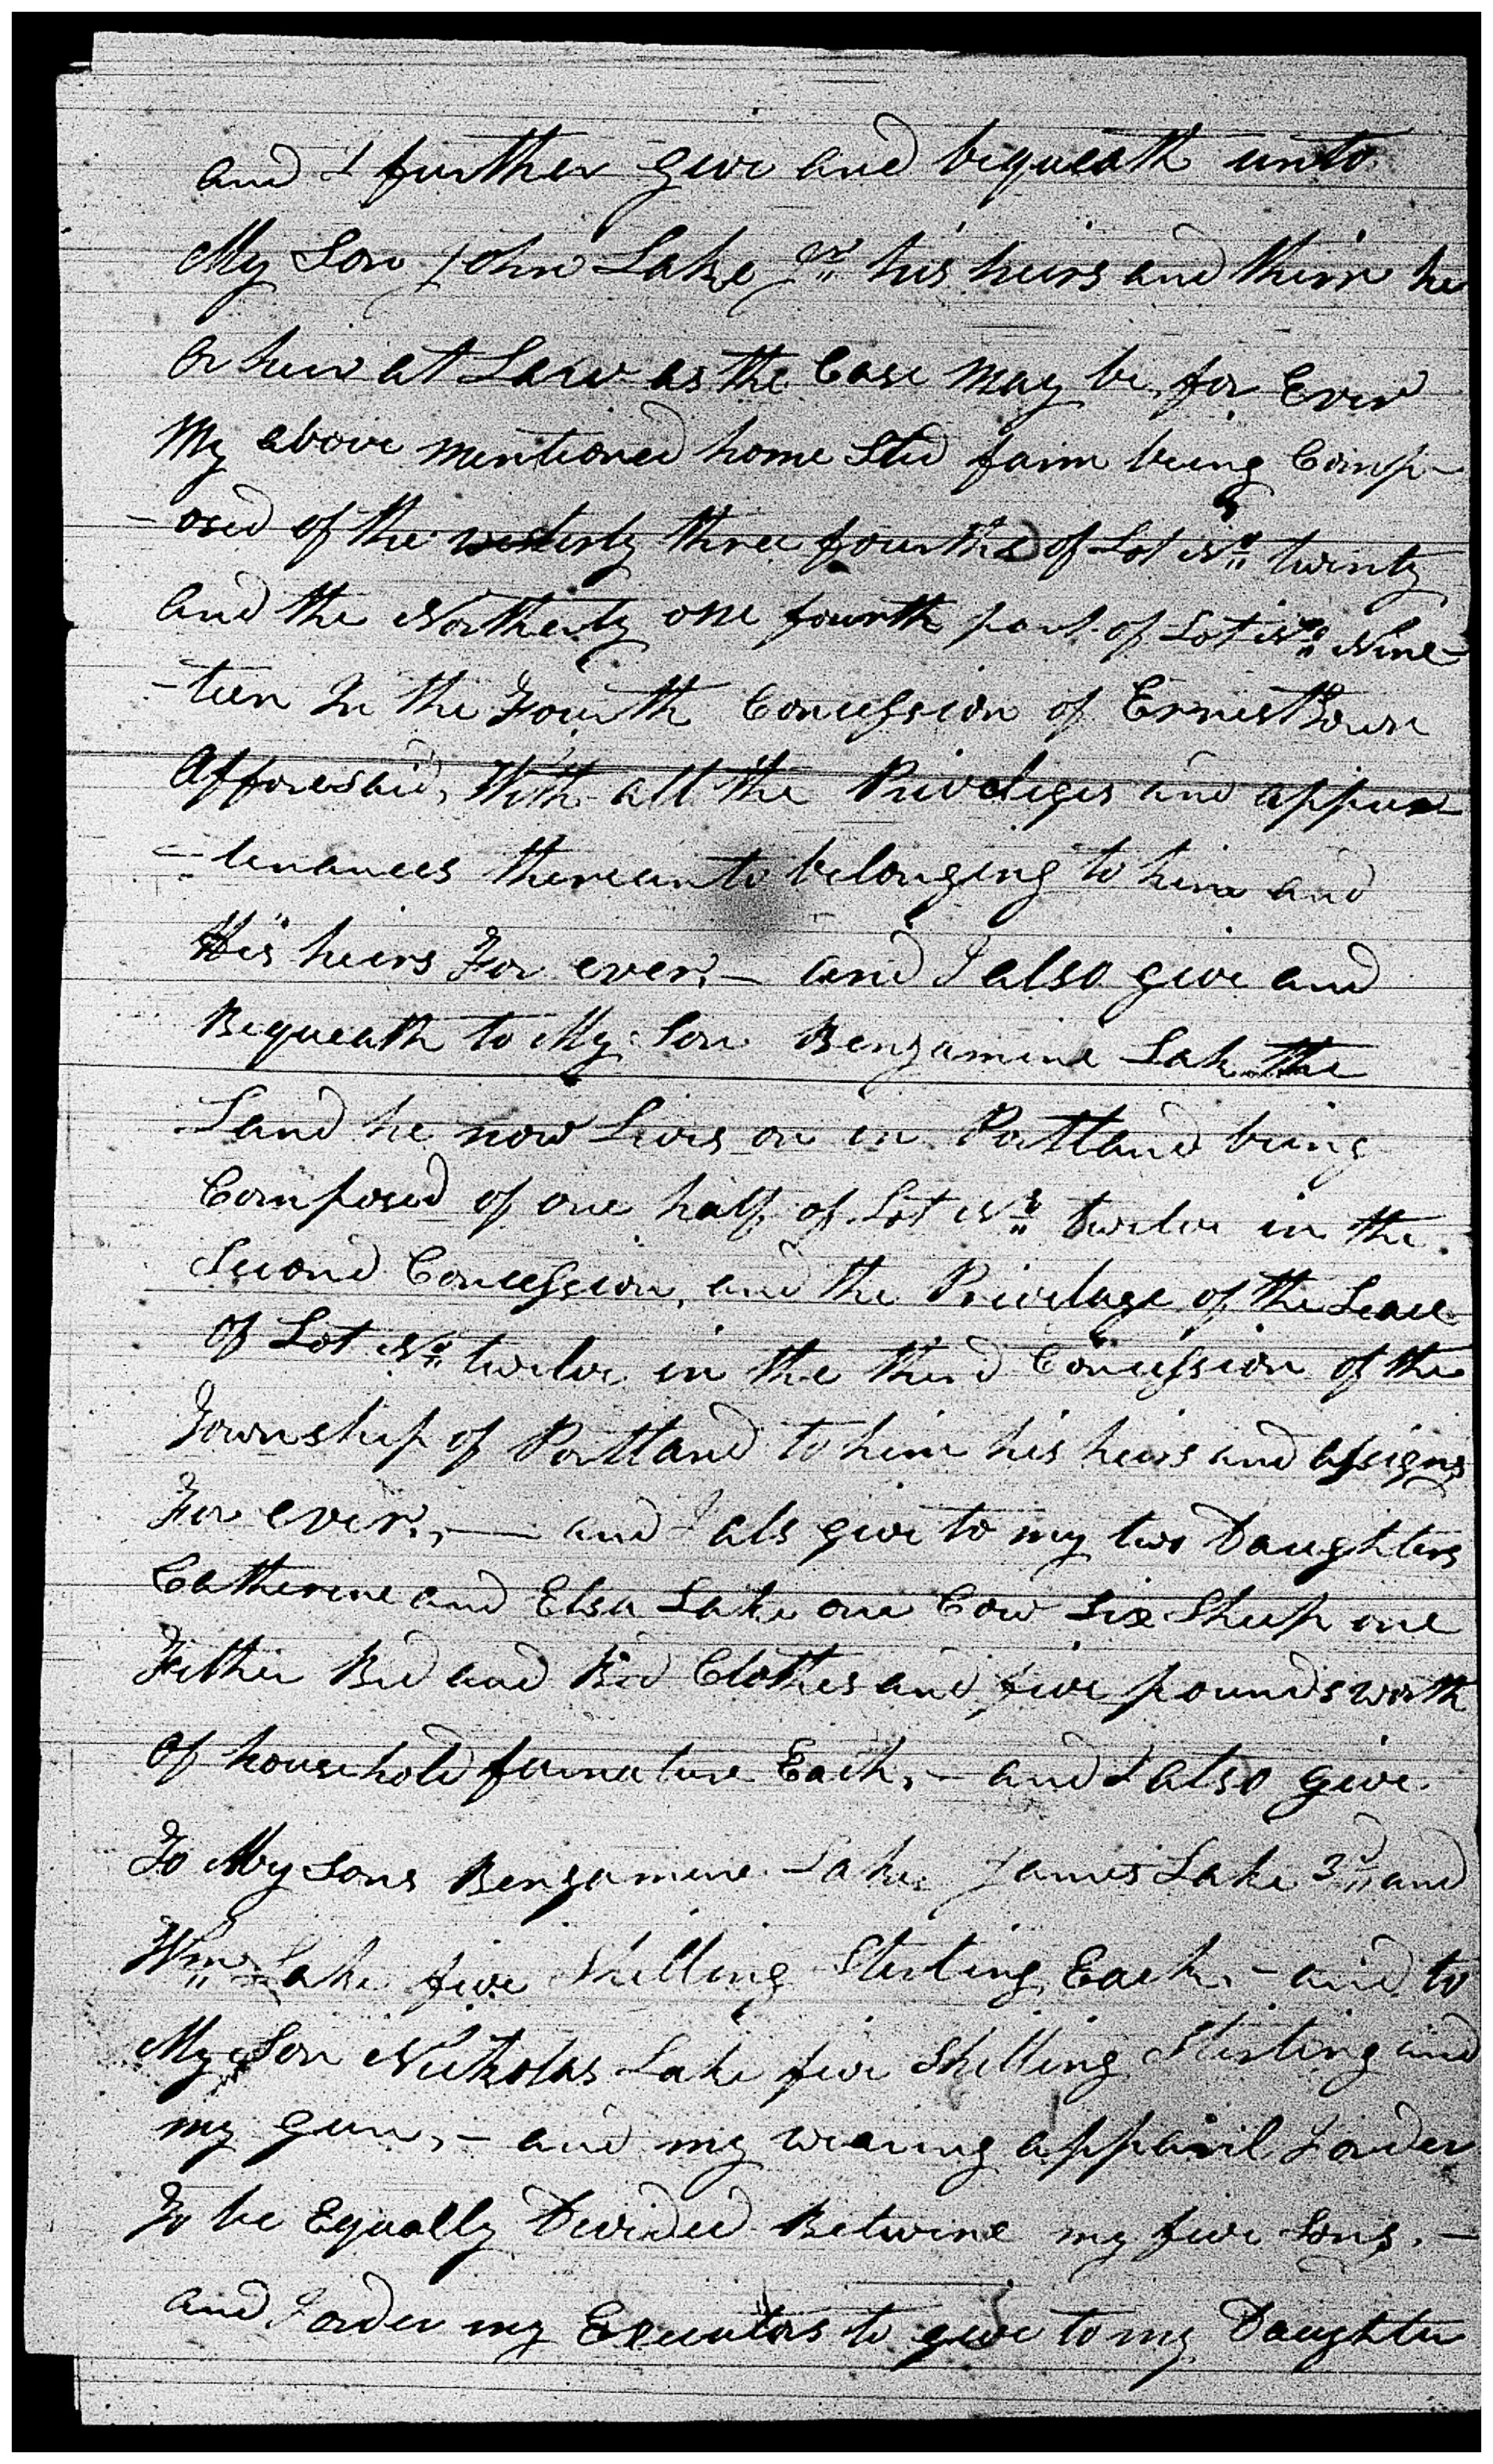 and I further give and bequeath unto
My Son John Lake Jnr his heirs and theire he
or heir at Law as the Case may be, for Ever
My above mentioned home Sted farm being Comp-
-osed of the westerly three fourths of Lot No twenty
and the Northerly one fourth part of Lot No Nine-
-teen In the Fourth Concession of Ernest Town
Afforesaid, With all the Priveleges and appur
-tenances thereunto belonging to him and
His heirs For ever, — and I also give and
Bequeath to My Son Benjamine Lake the
Land he now Lives on in Portland being
Composed of one half of Lot No twelve in the
Second Concession, and the Privelage of the Lease
of Lot No twelve in the third Concession of the
Township of Portland to him his heirs and assigns
For ever, — and I als give to my two Daughters
Catherine and Elsa Lake one Cow Six Sheep one
Fether Bed and Bed Clothes and five pounds worth
of household furnature Each, — and I also give
To My Sons Benjamine Lake James Lake 3rd and
Wm Lake five Shilling Sterling Each, — and to
My Son Nickolas Lake five Shilling Sterling and
my gun, — and my wearing apparil I order
To be Equally Devided Betwine my five Sons, —
and I order my Executors to give to my Daughter